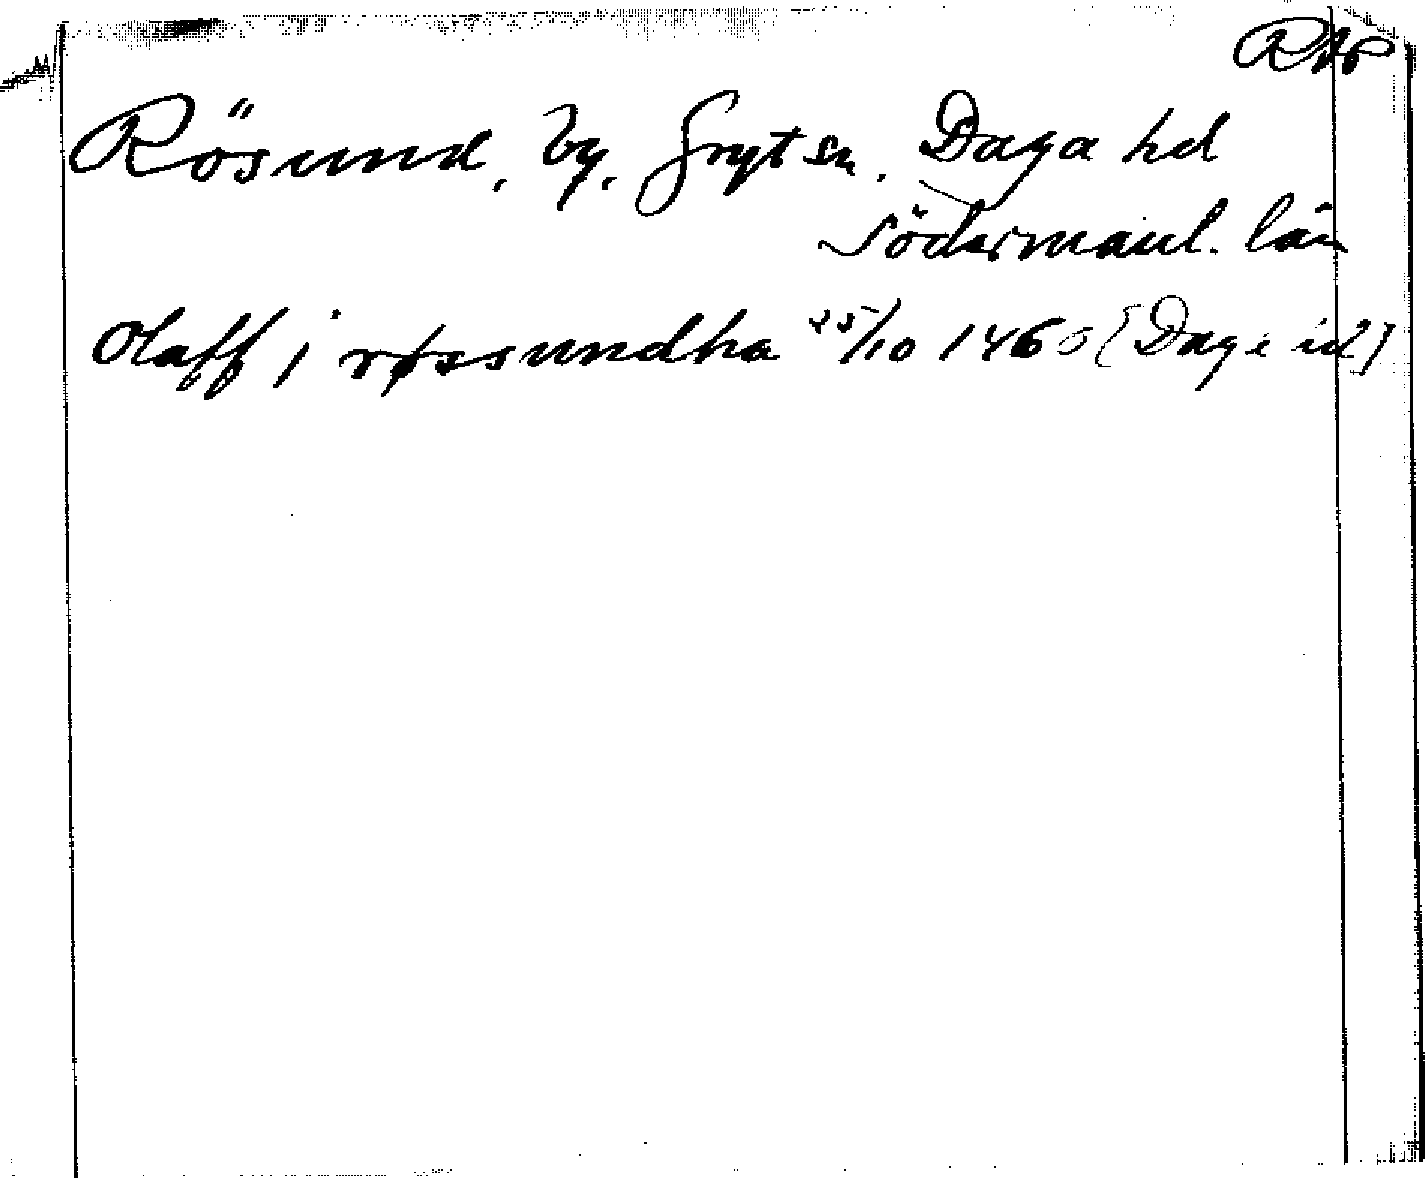 Rösund, by, Gryt sn. Daga hd
Södermanl. län
Olaff i røssundha 25/10 1460 [Daga id]